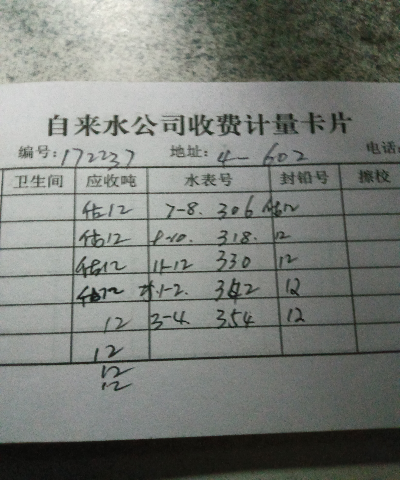 自来水公司收费计量卡片
编号:172237 地址:4-602 电话:
卫生间 应收吨 水表号 封铅号 擦校
估12 7-8. 306 估12
估12 9-10. 318. 12
估12 11-12 330 12
估12 1-2. 342 12
12 3-4. 354 12
12
12
12